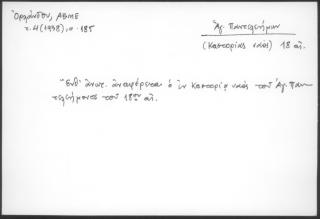 Ὀρλάνδου, ΑΒΜΕ
τ. 4 (1938), σ. 185
Ἁγ. Παντελεήμων
(Καστοριᾶς ναός) 18 αἰ.
Ἔνθ' ἀνωτ. ἀναφέρεται ὁ ἐν Καστορίᾳ ναός τοῦ Ἁγ. Παν
τελεήμονος τοῦ 18ου αἰ.